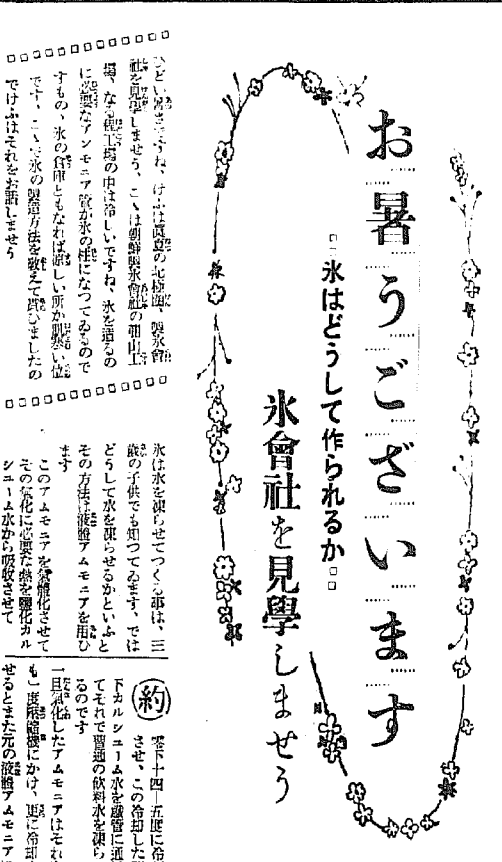 お暑うございます
氷はどうして作られるか
氷會社を見學しませう
ひどい暑さですね、けふは眞夏の北極圏、製氷會
社を見學しませう、こゝは朝鮮製氷會社の岡山工
場、なる程工場の中は冷しいですね、氷を造るの
に必要なアンモニア管が氷の柱になつてゐるので
すもの、氷の倉庫ともなれば凉しい所か肌寒い位
です、こゝで氷の製造方法を敎えて貰ひましたの
でけふはそれをお話しませう
氷は水を凍らせてつくる事は、三
歳の子供でも知つてゐます、では
どうして水を凍らせるかといふと
その方法は液體アムモニアを用ひ
ます
このアムモニアを氣體化させて
その氣化に必要な熱を鹽化カル
シユーム水から吸收させて
約
零下十四―五度に冷
させ、この冷却した
下カルシユーム水を鐵管に通
てそれで普通の飲料水を凍ら
るのです
一旦氣化したアムモニアはそれ
も一度壓縮機にかけ、更に冷却
せるとまた元の液體アムモニア